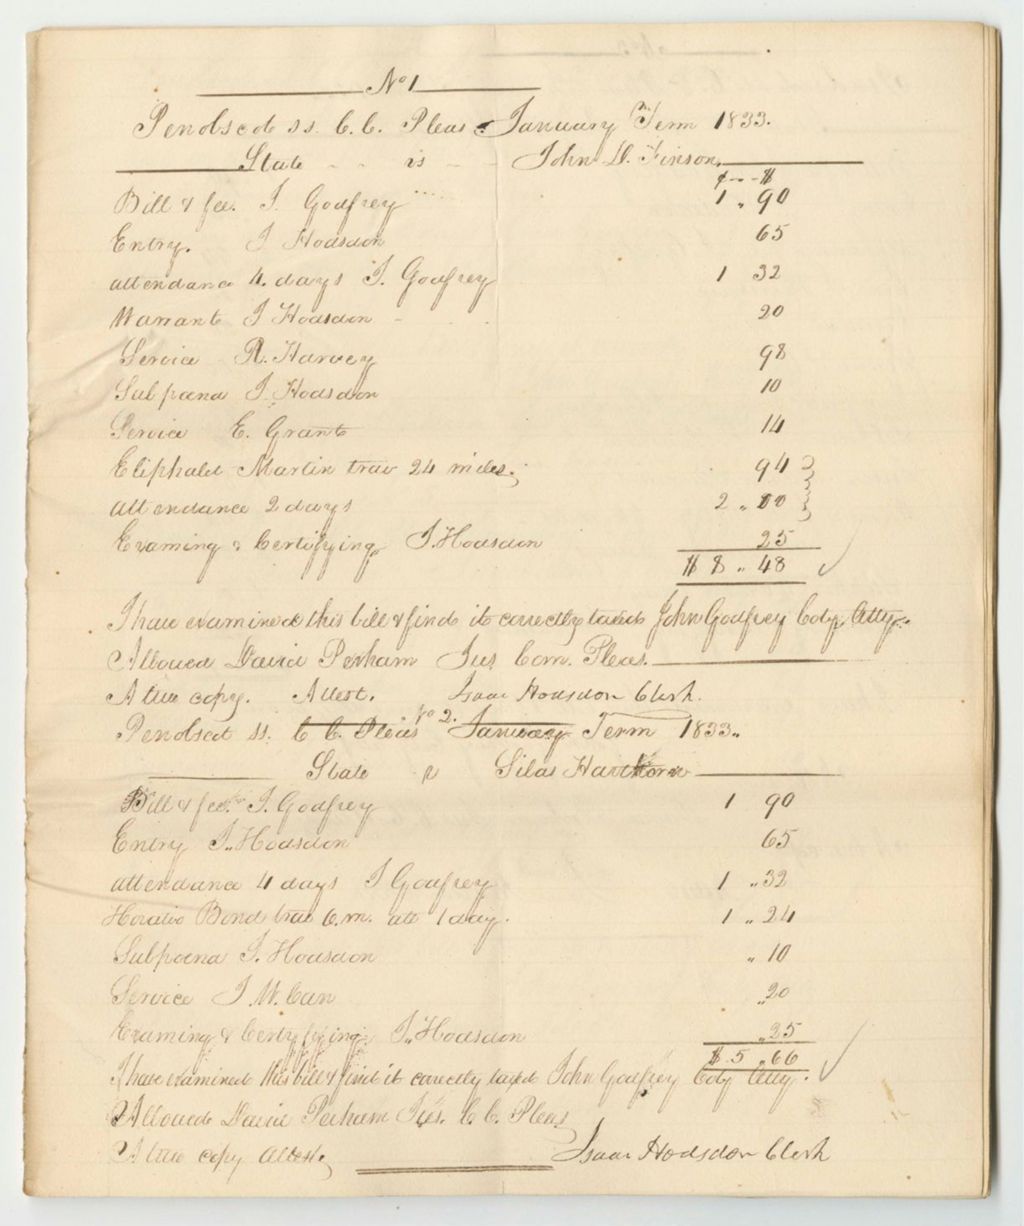 No 1
Penobscot ss. C. C. Pleas January Term 1833.
State - - vs - - John D. Finson.
$ - - $
Bill & fee. J. Godfrey 1 „ 90
Entry. I Hodsdon 65
attendance 4. days J. Godfrey 1 32
Warrant I Hodsdon - 20
Service R. Harvey 98
Subpoena I. Hodsdon 10
Service E. Grant 14
Eliphalet Martin trav 24 miles. 94
attendance 2 days 2 „ 00
Examing & Certifying I. Hodsdon 25
$ 8 „ 48
I have examined this bill & find it correctly taxed John Godfrey Coty. Atty.
Allowed David Perham Jus Com. Pleas.
A true copy. Attest. Isaac Hodsdon Clerk.
No 2.
Penobscot ss. C C. Pleas January Term 1833.
State vs Silas Hawthorn
Bill & fee. J. Godfrey 1 90
Entry I. Hodsdon 65
attendance 4 days J Godfrey 1 „ 32
Horatio Bond trav 6. m. att 1 day. 1 „ 24
Subpoena I. Hodsdon „ 10
Service J. W. Carr „ 20
Examing & Certyfying I. Hodsdon „ 25
$ 5 „ 66
I have examined this bill & find it correctly taxed John Godfrey Coty Atty.
Allowed David Perham Jus. C. C. Pleas
A true copy Attest. Isaac Hodsdon Clerk